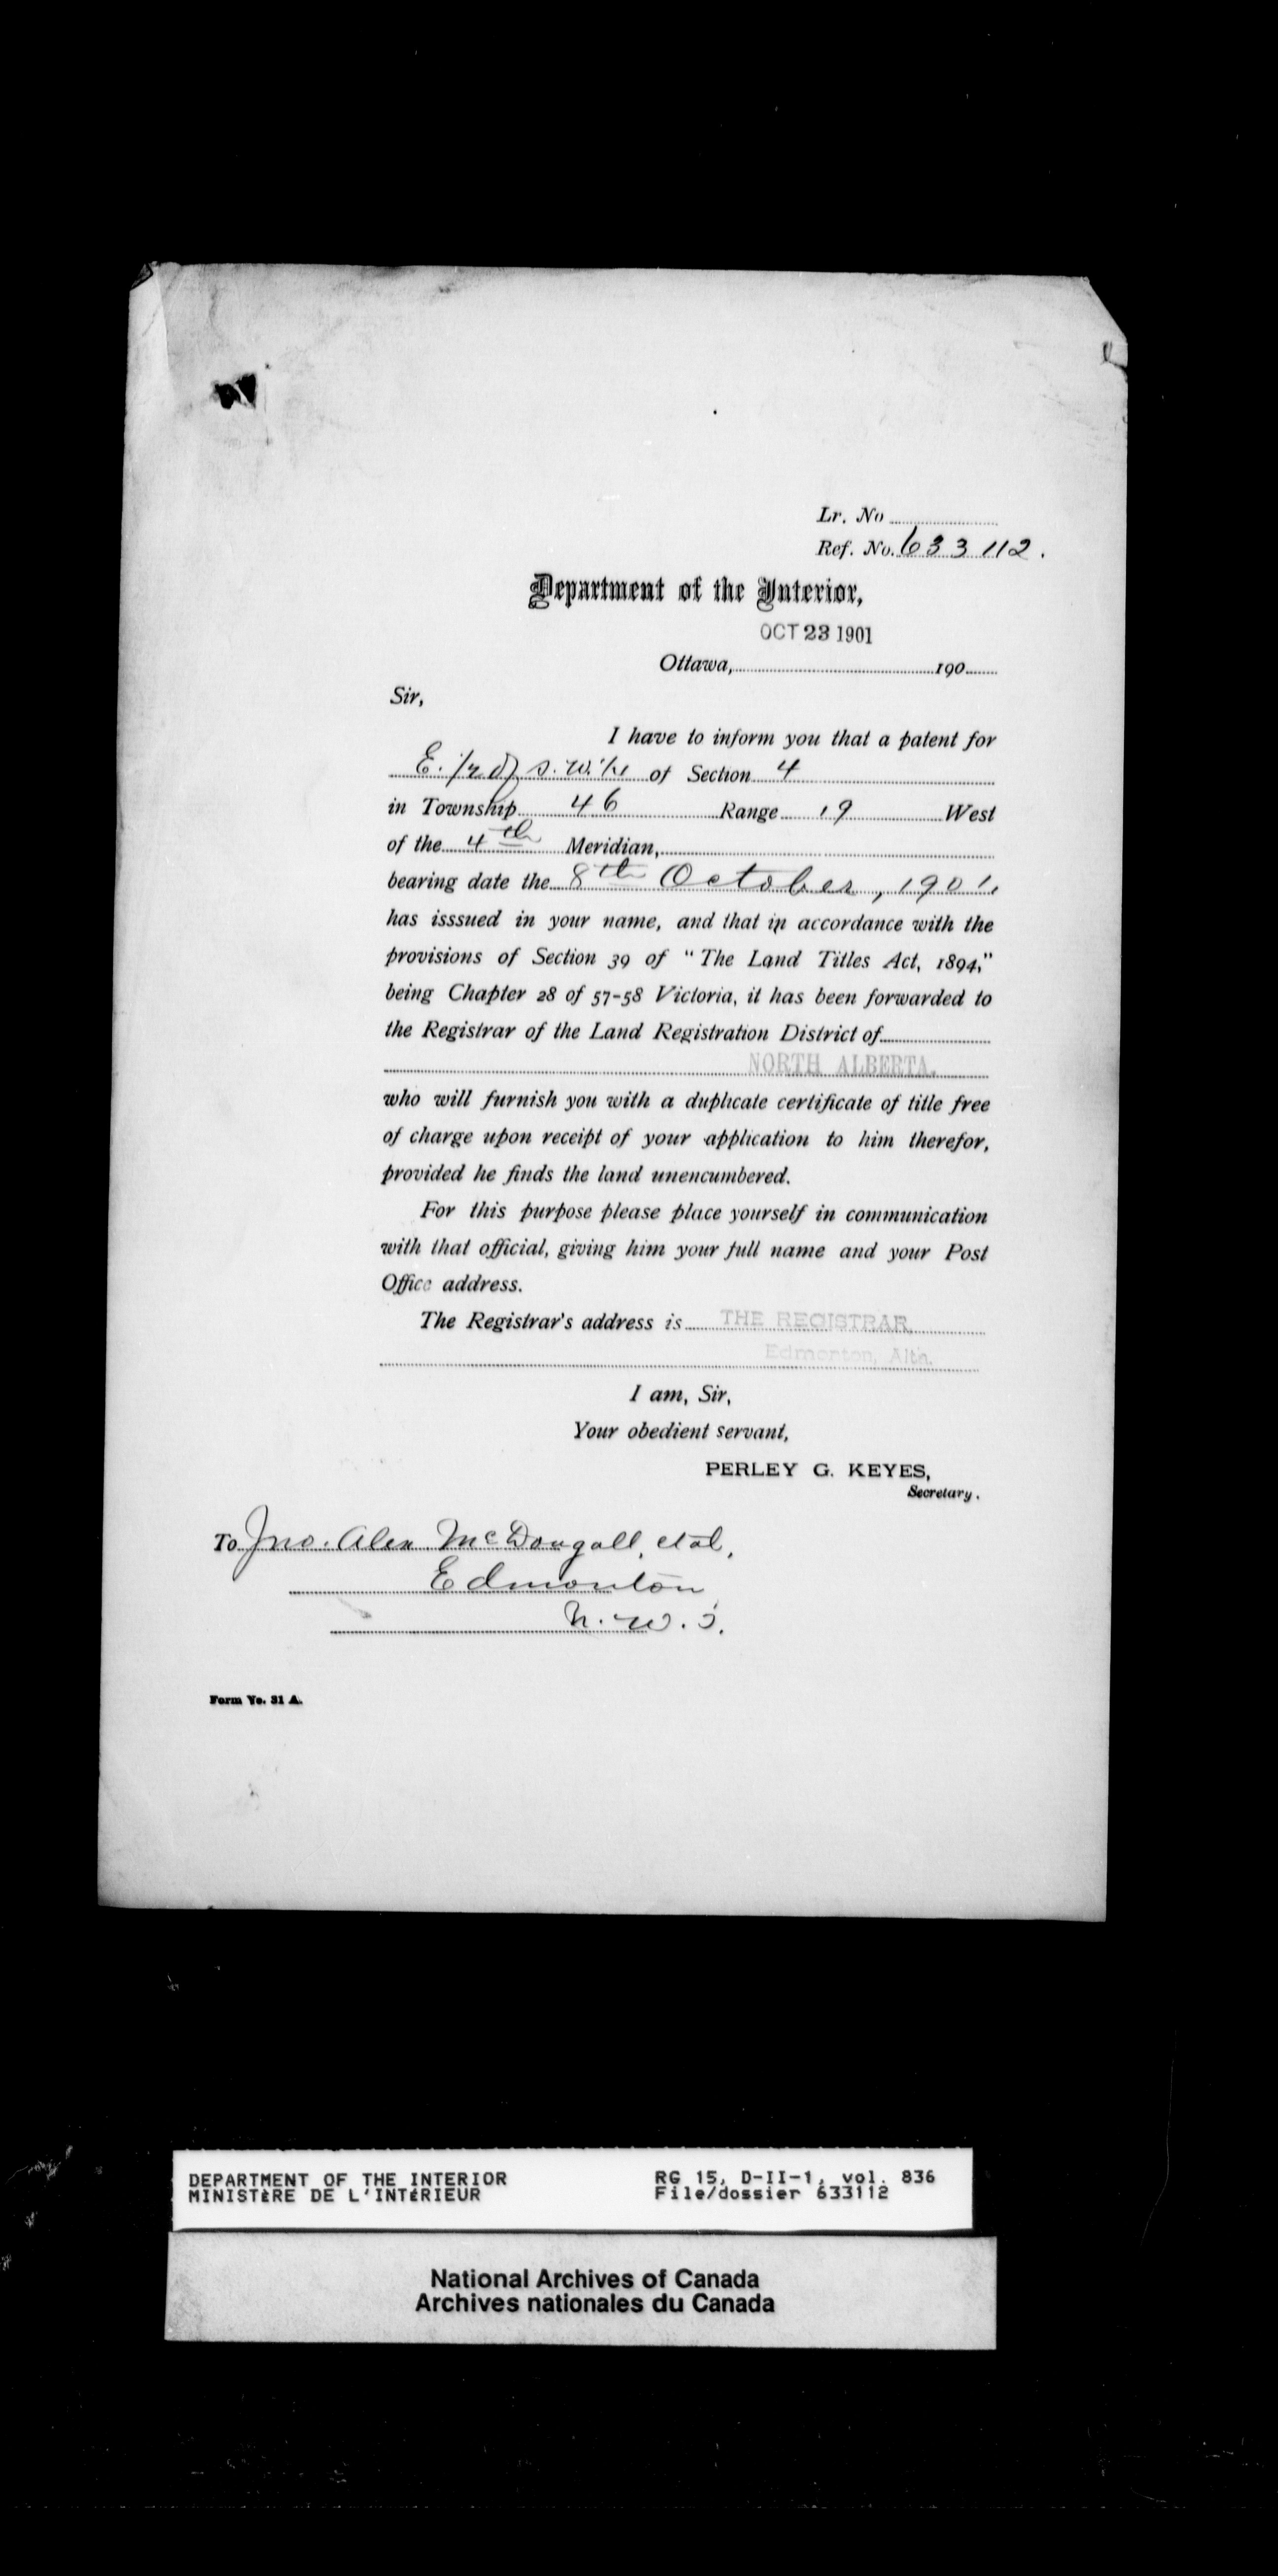 Lr. No
Ref. No. 633112.
Department of the Interior,
OCT 23 1901
Ottawa, 190
Sir,
I have to inform you that a patent for
E. 1/2 of S. W. 1/4 of Section 4
in Township 46 Range 19 West
of the 4th Meridian,
bearing date the 8th October, 1901,
has isssued in your name, and that in accordance with the
provisions of Section 39 of "The Land Titles Act, 1894,"
being Chapter 28 of 57-58 Victoria, it has been forwarded to
the Registrar of the Land Registration District of
NORTH ALBERTA.
who will furnish you with a duplicate certificate of title free
of charge upon receipt of your application to him therefor,
provided he finds the land unencumbered.
For this purpose please place yourself in communication
with that official, giving him your full name and your Post
Office address.
The Registrar's address is THE REGISTRAR,
Edmonton, Alta.
I am, Sir,
Your obedient servant,
PERLEY G. KEYES,
Secretary.
To Jno. Alex McDougall, etal,
Edmonton
N. W. T.
Form No. 31 A.
DEPARTMENT OF THE INTERIOR RG 15, D-II-1, vol. 836
MINISTÈRE DE L'INTÉRIEUR File/dossier 633112
National Archives of Canada
Archives nationales du Canada